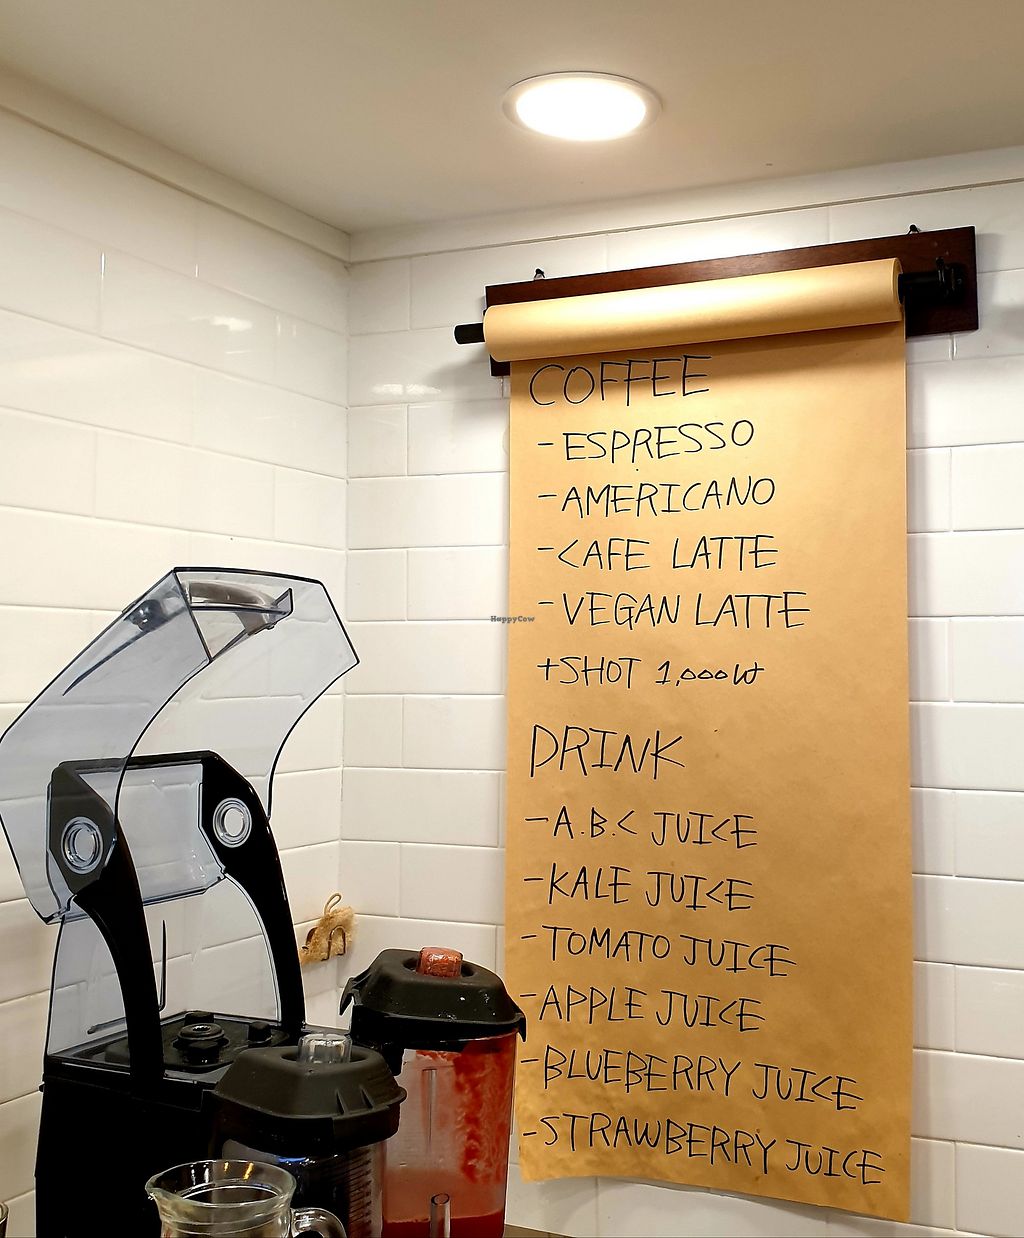 COFFEE
-ESPRESSO
-AMERICANO
-CAFE LATTE
-VEGAN LATTE
HappyCow
+SHOT 1,000W
DRINK
-A.B.C JUICE
-KALE JUICE
-TOMATO JUICE
-APPLE JUICE
-BLUEBERRY JUICE
-STRAWBERRY JUICE